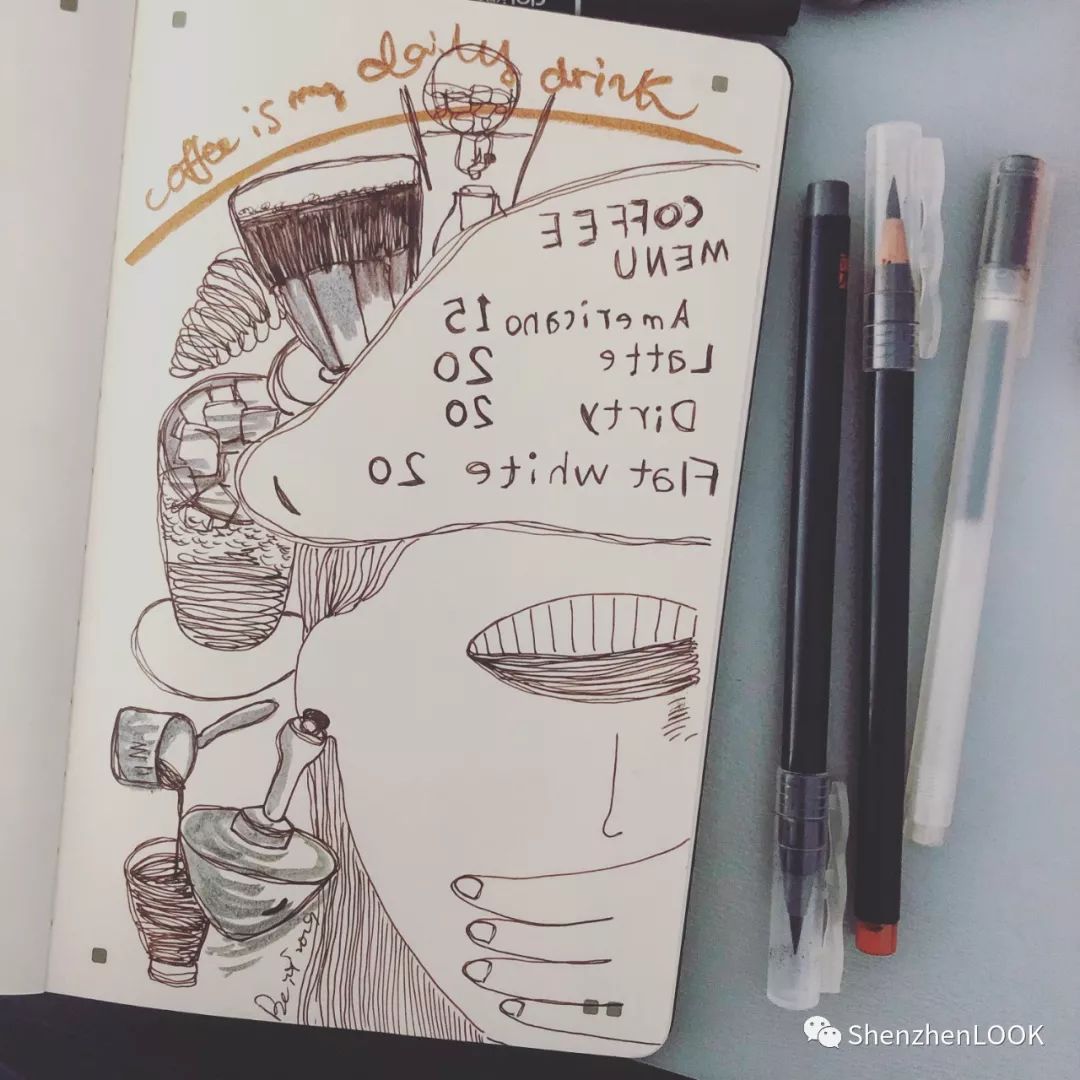 coffee is my daily drink
COFFEE
MENU
Americano 15
Latte 20
Dirty 20
Flat white 20
2019
ShenzhenLOOK